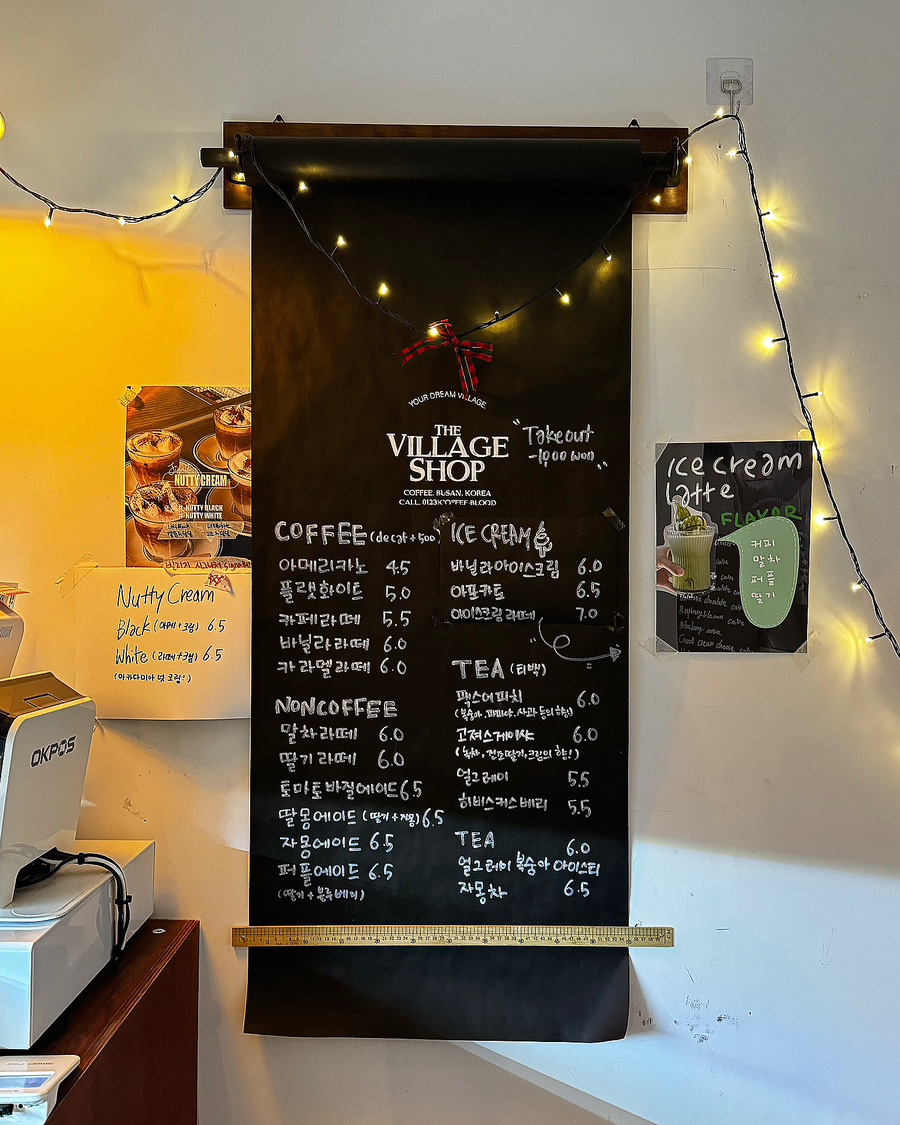 YOUR DREAM VILLAGE
THE
VILLAGE
SHOP
COFFEE. BUSAN. KOREA
"Takeout
-1000 won"
COFFEE (decaf + 500)
아메리카노 4.5
플랫화이트 5.0
카페라떼 5.5
바닐라라떼 6.0
카라멜라떼 6.0
NONCOFFEE
말차라떼 6.0
딸기라떼 6.0
토마토바질에이드 6.5
딸몽에이드 (딸기+자몽) 6.5
자몽에이드 6.5
퍼플에이드 6.5
(딸기+블루베리)
ICE CREAM
바닐라아이스크림 6.0
아포카토 6.5
아이스크림라떼 7.0
TEA (티백)
팩스어피치 6.0
(복숭아, 파파야, 사과 등의 향)
고져스게이샤 6.0
얼그레이 5.5
히비스커스베리 5.5
TEA 6.0
얼그레이 복숭아 아이스티
자몽차 6.5
NUTTY CREAM
NUTTY BLACK
NUTTY WHITE
Nutty Cream
Black (아메+크림) 6.5
White (라떼+크림) 6.5
(마카다미아 넛 크림!)
OKPOS
ice cream
latte
FLAVOR
커피
말차
퍼플
딸기